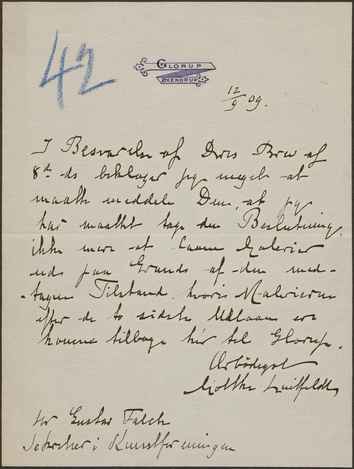 42
GLORUP
ØXENDRUP
12/9 09.
I Besvarelse af Deres Brev af
8de ds beklager jeg meget at
maatte meddele Dem, at jeg
har maattet tage den Beslutning,
ikke mere at laane Malerier
uds paa Grund af den med-
-tagne Tilstand, hvori Malerierne
efter de to sidste Udlaan ere
komne tilbage her til Glorup.
Ærbødigst
Moltke Huitfeldt
Hr Gustav Falck
Sekretær i Kunstforeningen